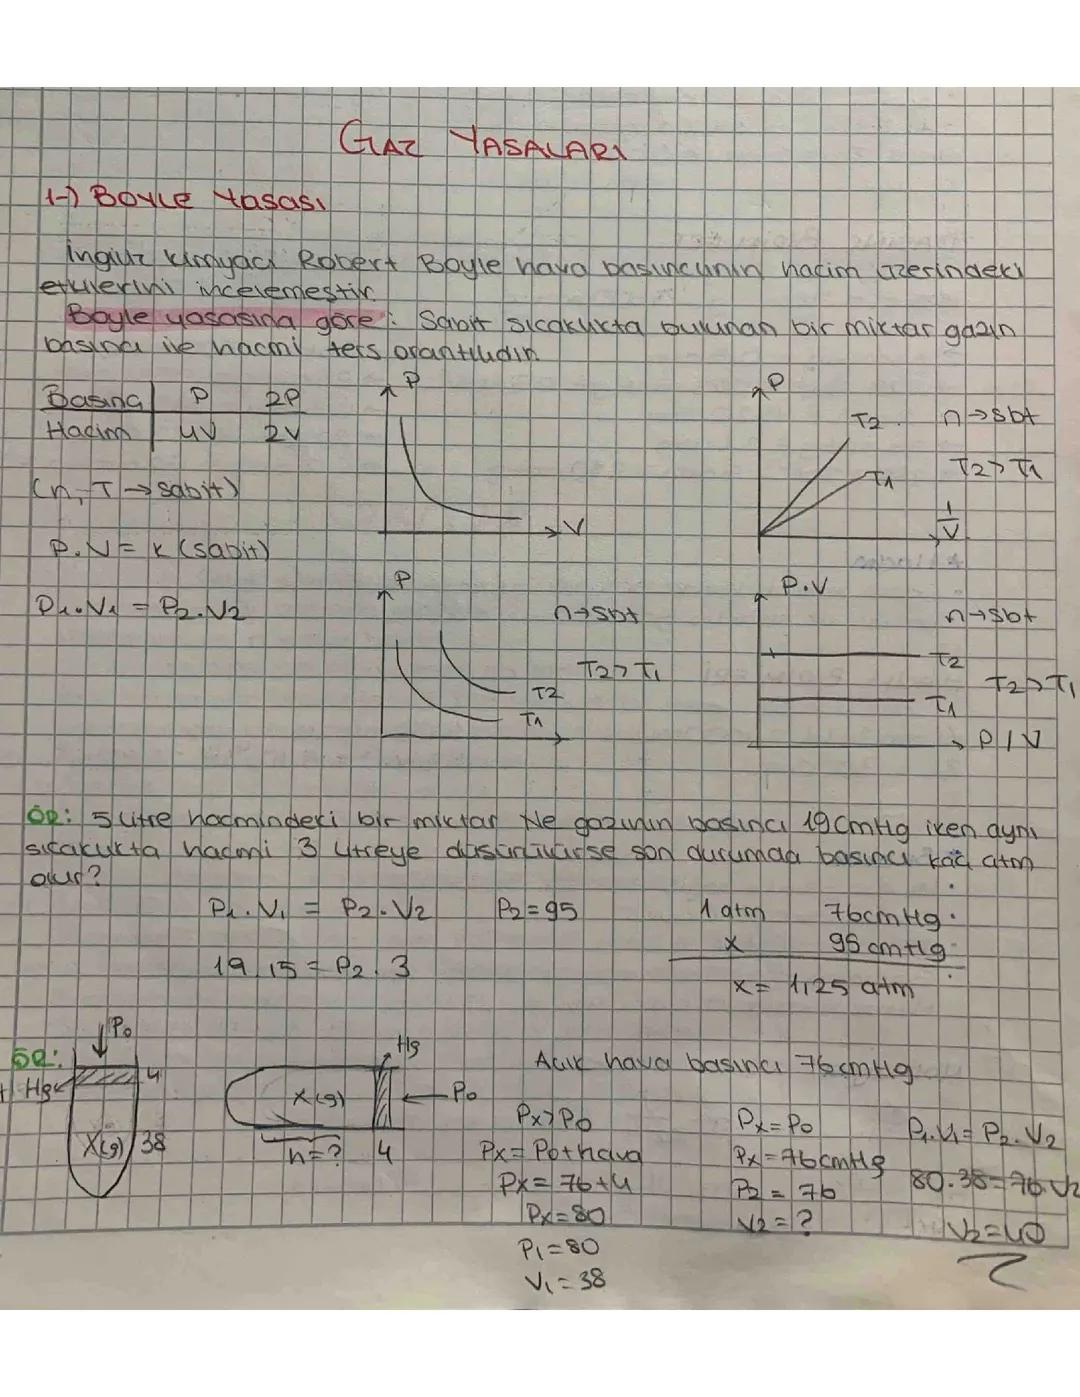 GAZ YASALARI
1-) BOYLE Yasası
İngiliz kimyacı Robert Boyle hava basıncının hacim üzerindeki
etkilerini incelemeştir.
Boyle yasasına göre: Sabit sıcaklıkta bulunan bir miktar gazın
basıncı ile hacmi ters orantılıdır.
Basınç P 2P
Hacim 4V 2V
(n, T → sabit)
P.V = k (sabit)
P1.V1 = P2.V2
P
V
P
T2
T1
n→sbt
T2>T1
1/V
P
n→sbt
T2>T1
T2
T1
P.V
n→sbt
T2
T1
T2>T1
P/V
ÖR: 5 litre hacmindeki bir miktar Ne gazının basıncı 19 cmHg iken aynı
sıcaklıkta hacmi 3 litreye düşürülürse son durumda basıncı kaç atm
olur?
P1.V1 = P2.V2 P2=95 1 atm 76cmHg
19 15 = P2.3 x 95 cmHg
x= 1,25 atm
ÖR: P0
Hg 4
X(g) 38
Hg
X(g) P0
h=? 4
Açık hava basıncı 76cmHg
Px>P0
Px=P0+hciva
Px=76+4
Px=80
P1=80
V1=38
Px=P0
Px=76cmHg
P2=76
V2=?
P1.V1=P2.V2
80.38=76.V2
V2=40